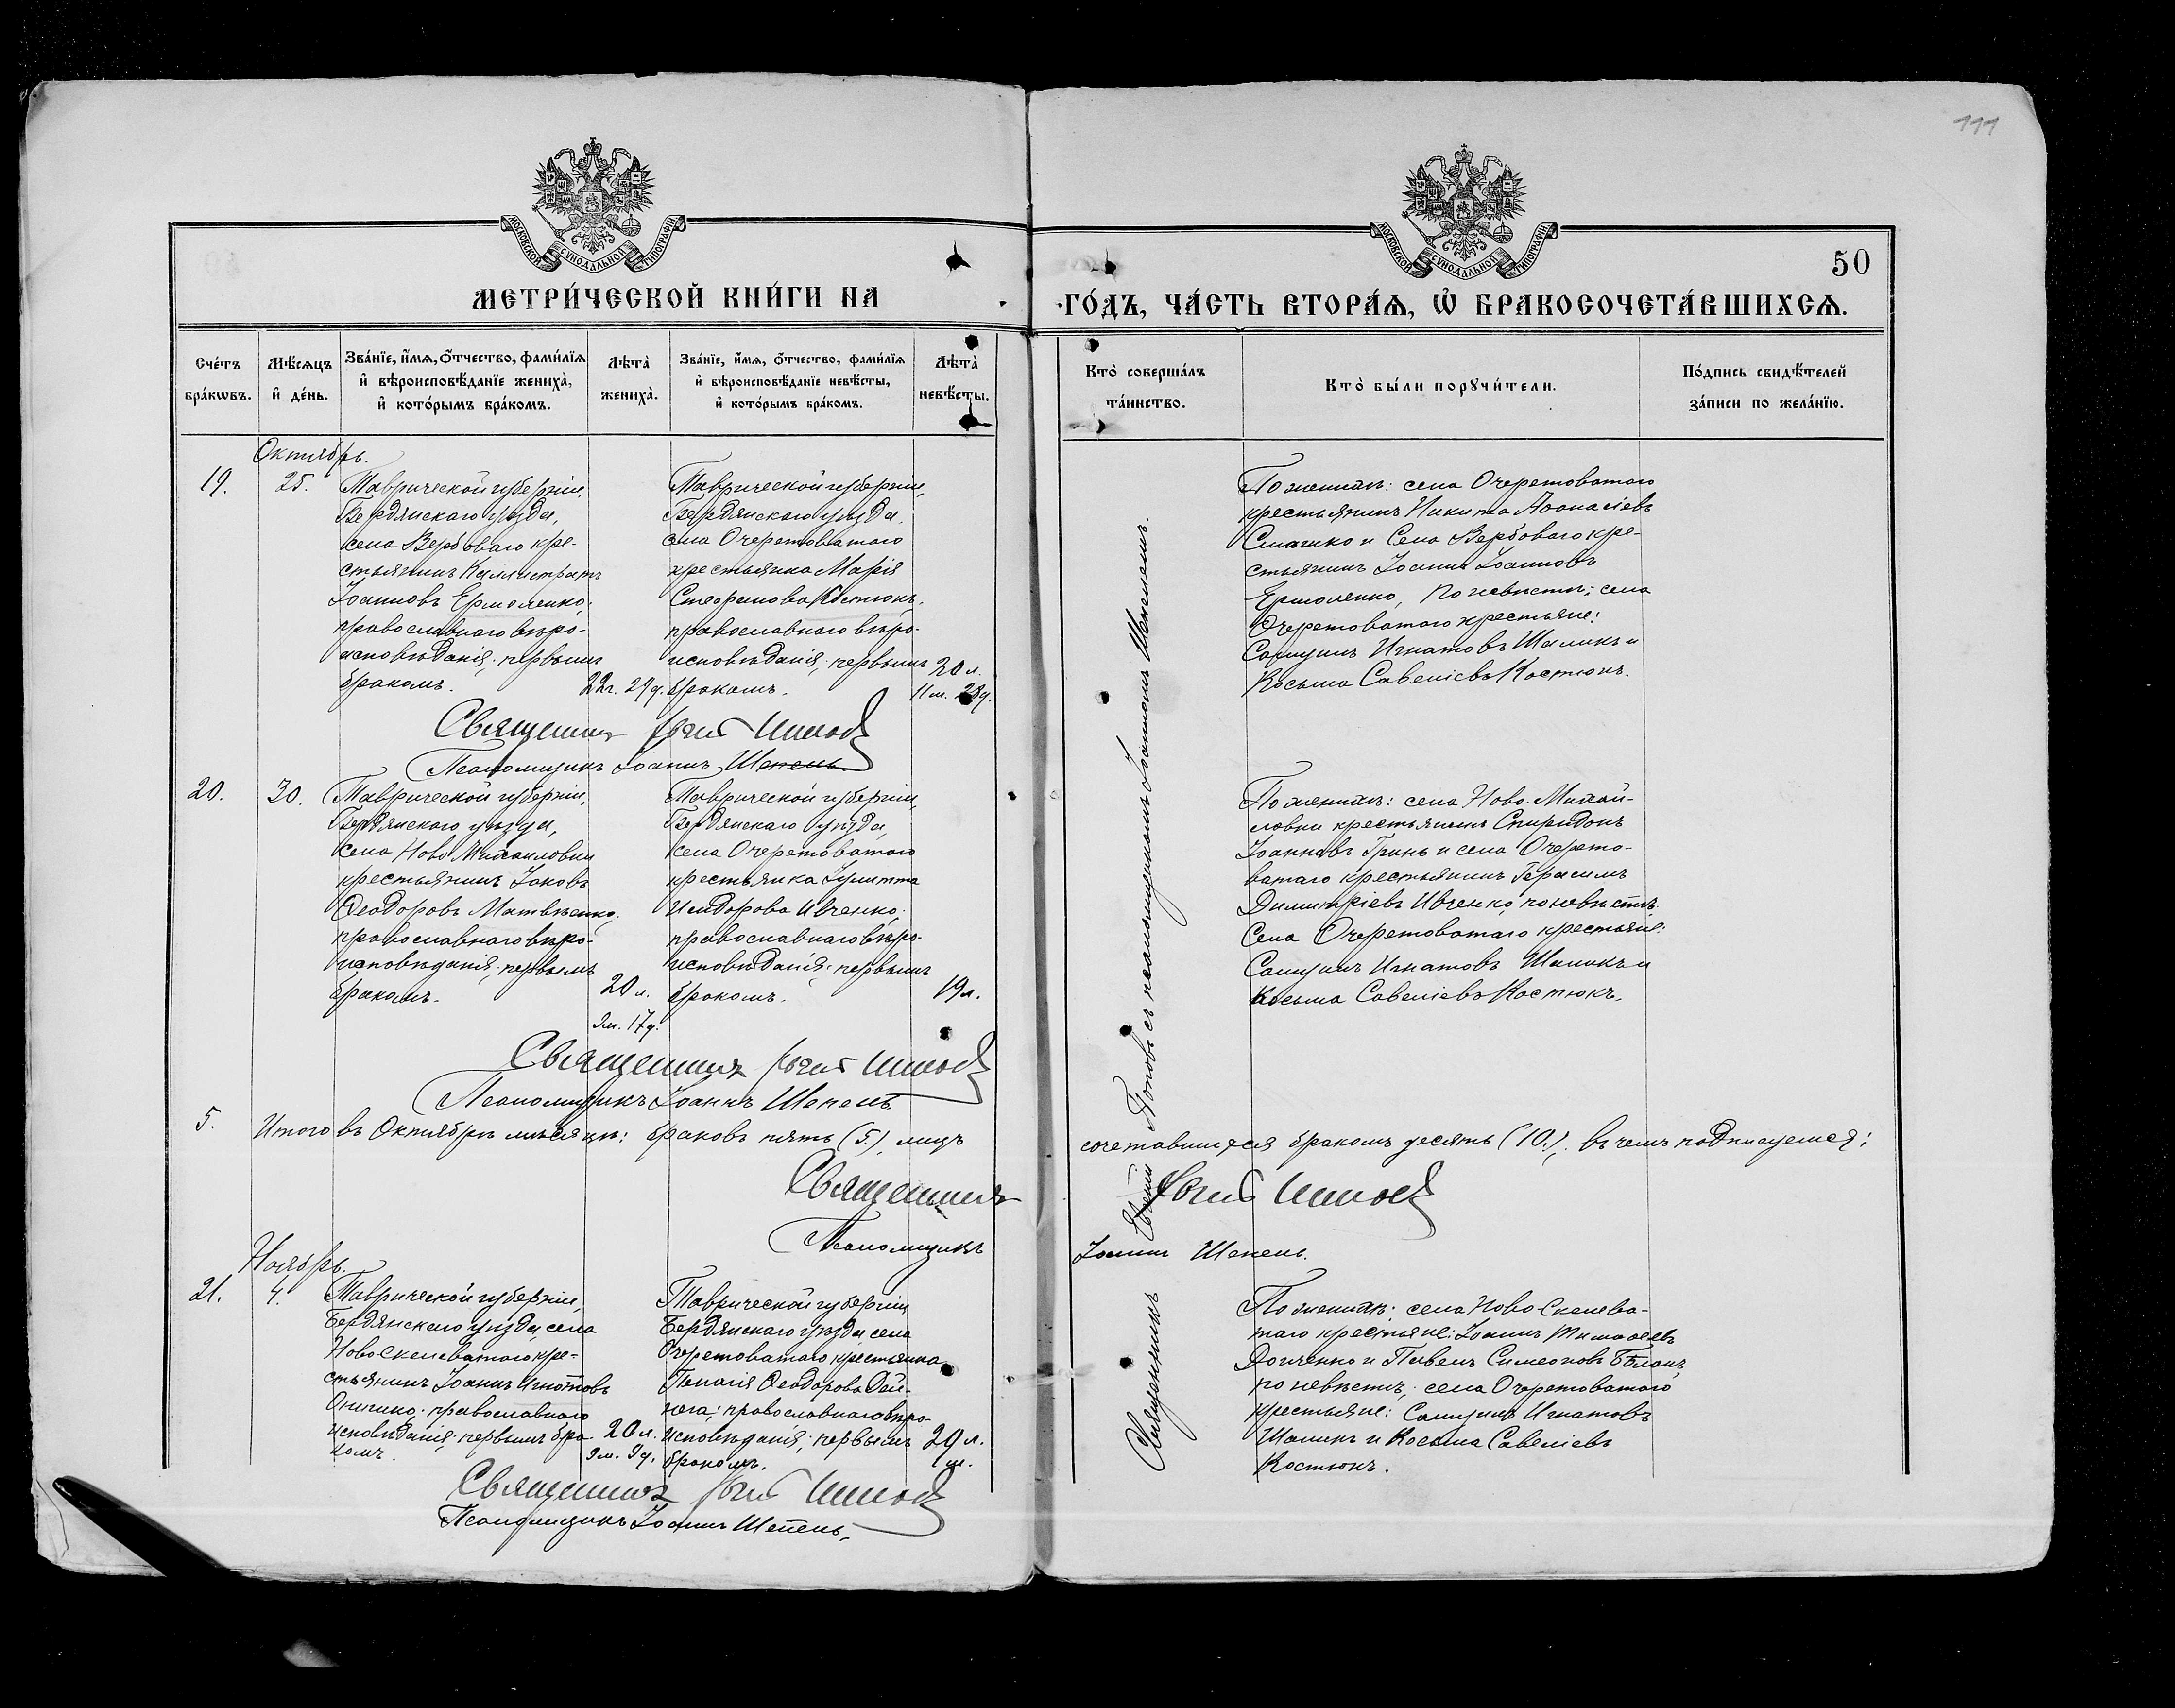 111
МОСКОВСКОЙ СѴНОДАЛЬНОЙ ТИПОГРАФІИ
МОСКОВСКОЙ СѴНОДАЛЬНОЙ ТИПОГРАФІИ
50
МЕТРИ́ЧЕСКОЙ КНИ́ГИ НА
ГО́ДЪ, ЧА́СТЬ ВТОРА́Ѧ, Ѡ҆ БРАКОСОЧЕТА́ВШИХСѦ.
Сче́тъ бра́кѡвъ.
Мѣ́сѧцъ и҆ де́нь.
Зва́нїе, и҆́мѧ, ѻ҆́тчество, фами́лїѧ и҆ вѣроисповѣ́данїе жениха̀, и҆ кото́рымъ бра́комъ.
Лѣта̀ жениха̀.
Зва́нїе, и҆́мѧ, ѻ҆́тчество, фами́лїѧ и҆ вѣроисповѣ́данїе невѣ́сты, и҆ кото́рымъ бра́комъ.
Лѣта̀ невѣ́сты.
Кто̀ соверша́лъ та́инство.
Кто̀ бы́ли порꙋчи́тели.
По́дпись свидѣ́телей за́писи по жела́нїю.
Октябрь.
19.
25.
Таврической губерніи,
Бердянскаго уѣзда,
села Вербоваго кре-
стьянинъ Каллистратъ
Іоанновъ Ермоленко,
православнаго вѣро-
исповѣданія; первымъ
бракомъ.
22г. 29д.
Таврической губерніи,
Бердянскаго уѣзда,
села Очеретоватаго
крестьянка Марія
Стефанова Костюкъ,
православнаго вѣро-
исповѣданія; первымъ
бракомъ.
20 л.
11 м. 28д.
По женихѣ: села Очеретоватаго
крестьянинъ Никита Аѳанасіевъ
и Села Вербоваго кре-
стьянинъ Іоаннъ Іоанновъ
Ермоленко, по невѣстѣ; села
Очеретоватаго крестьяне:
Самуилъ Игнатовъ Шаликъ и
Косьма Савеліевъ Костюкъ.
Священникъ
Псаломщикъ Іоаннъ Шепель
20.
30.
Таврической губерніи,
Бердянскаго уѣзда,
села Ново Михайловки
крестьянинъ Іаковъ
Ѳеодоровъ Матвѣенко,
православнаго вѣро-
исповѣданія; первымъ
бракомъ.
20 л.
9м. 17д.
Таврической губерніи,
Бердянскаго уѣзда,
села Очеретоватаго
крестьянка Іулитта
Исидорова Ивченко;
православнаго вѣро-
исповѣданія; первымъ
бракомъ.
19л.
По женихѣ: села Ново-Михай-
ловки крестьянинъ Спиридонъ
Іоанновъ Гринь и села Очерето-
ватаго крестьянинъ Герасимъ
Димитріевъ Ивченко, по невѣстѣ
Села Очеретоватаго крестьяне:
Самуилъ Игнатовъ Шаликъ и
Косьма Савеліевъ Костюкъ.
Священникъ
Псаломщикъ Іоаннъ Шепель.
5.
Итого въ Октябрѣ мѣсяцѣ: браковъ пять (5), лицъ
сочетавшихся бракомъ десять (10.). въ чемъ подписуемся:
Священникъ
Псаломщикъ
Іоаннъ Шепель.
Ноябрь.
21.
4.
Таврической губерніи,
Бердянскаго уѣзда, села
Ново Скелеватаго кре-
стьянинъ Іоаннъ Игнатовъ
православнаго
исповѣданія; первымъ бра-
комъ.
20 л.
9м. 9д.
Таврической губерніи
Бердянскаго уѣзда села
Очеретоватаго крестьянка
Пелагія Ѳеодорова Дей-
нега; православнаго вѣро-
исповѣданія; первымъ
бракомъ.
По женихѣ; села Ново-Скелева-
таго крестьяне: Іоаннъ Тимоѳеевъ
и Павелъ Симеоновъ
по невѣстѣ; села Очеретоватаго
крестьяне: Самуилъ Игнатовъ
Шаликъ и Косьма Савеліевъ
Костюкъ.
Священникъ
Псаломщикъ Іоаннъ Шепель.
Священникъ Поповъ съ псаломщикомъ Іоанномъ Шепелемъ.